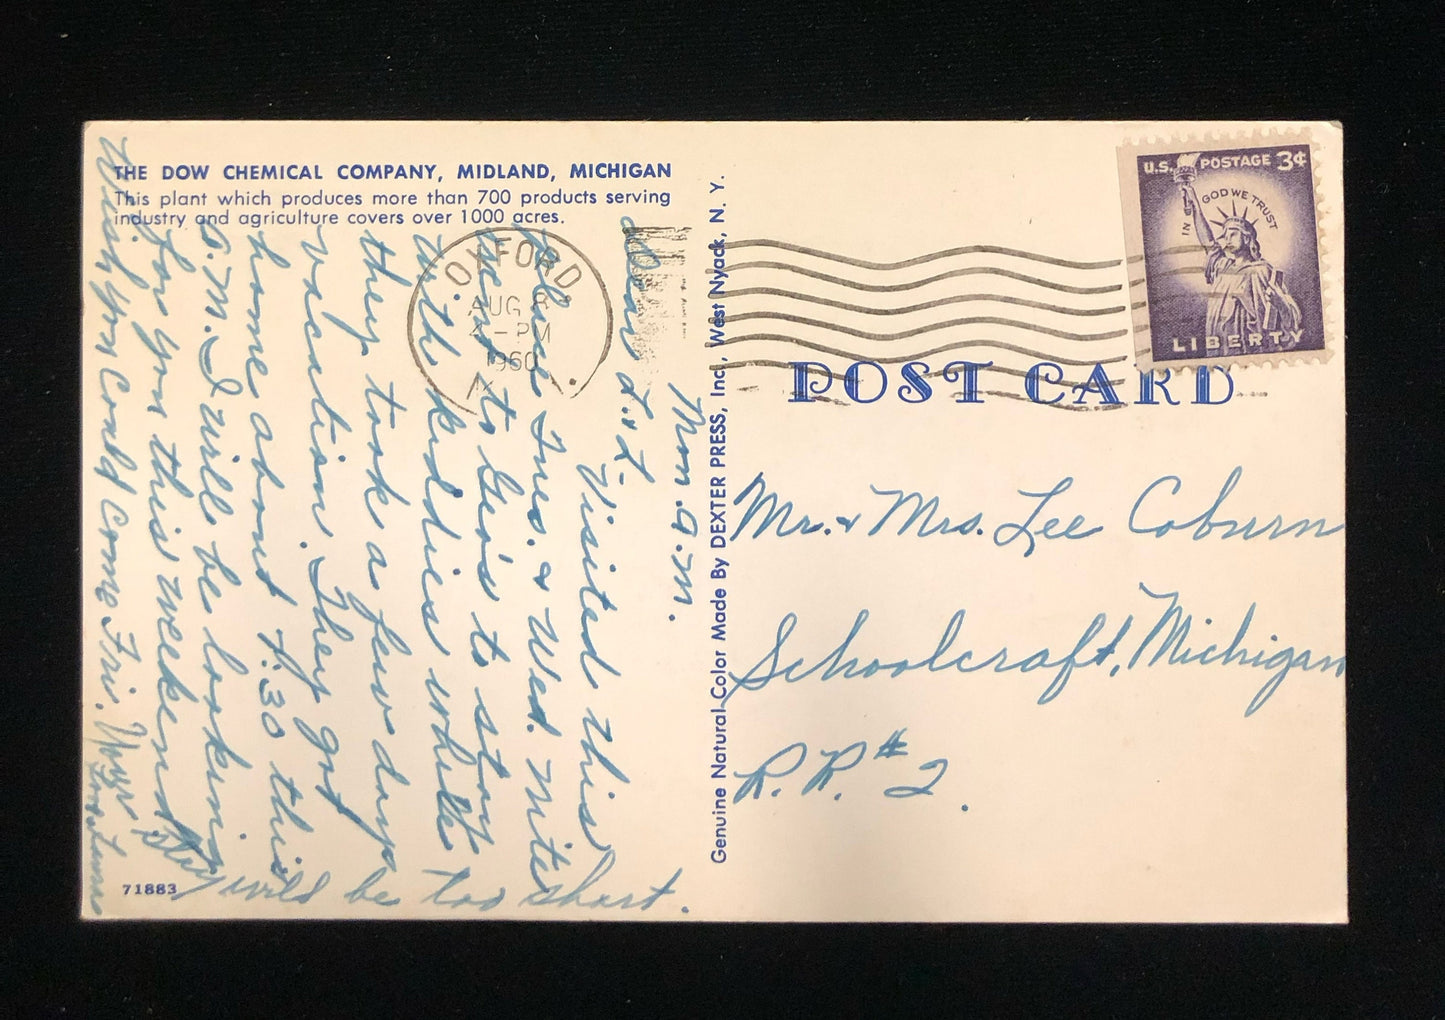 THE DOW CHEMICAL COMPANY, MIDLAND, MICHIGAN
This plant which produces more than 700 products serving
industry and agriculture covers over 1000 acres.
Mon. A.M.
Dear L. & L.
Visited this
place Tues. & Wed. Nite
went to Geo's to stay
with the kiddies while
they took a few days
vacation. They got
home about 4:30 this
A.M. I will be looking
for you this weekend
Wish you could come Fri.
will be too short.
71883
Genuine Natural Color Made By DEXTER PRESS, Inc., West Nyack, N. Y.
OXFORD
AUG 8
4-PM
1960
U.S. POSTAGE 3¢
IN GOD WE TRUST
LIBERTY
POST CARD
Mr. & Mrs. Lee Coburn
Schoolcraft, Michigan
R. R. # 2.